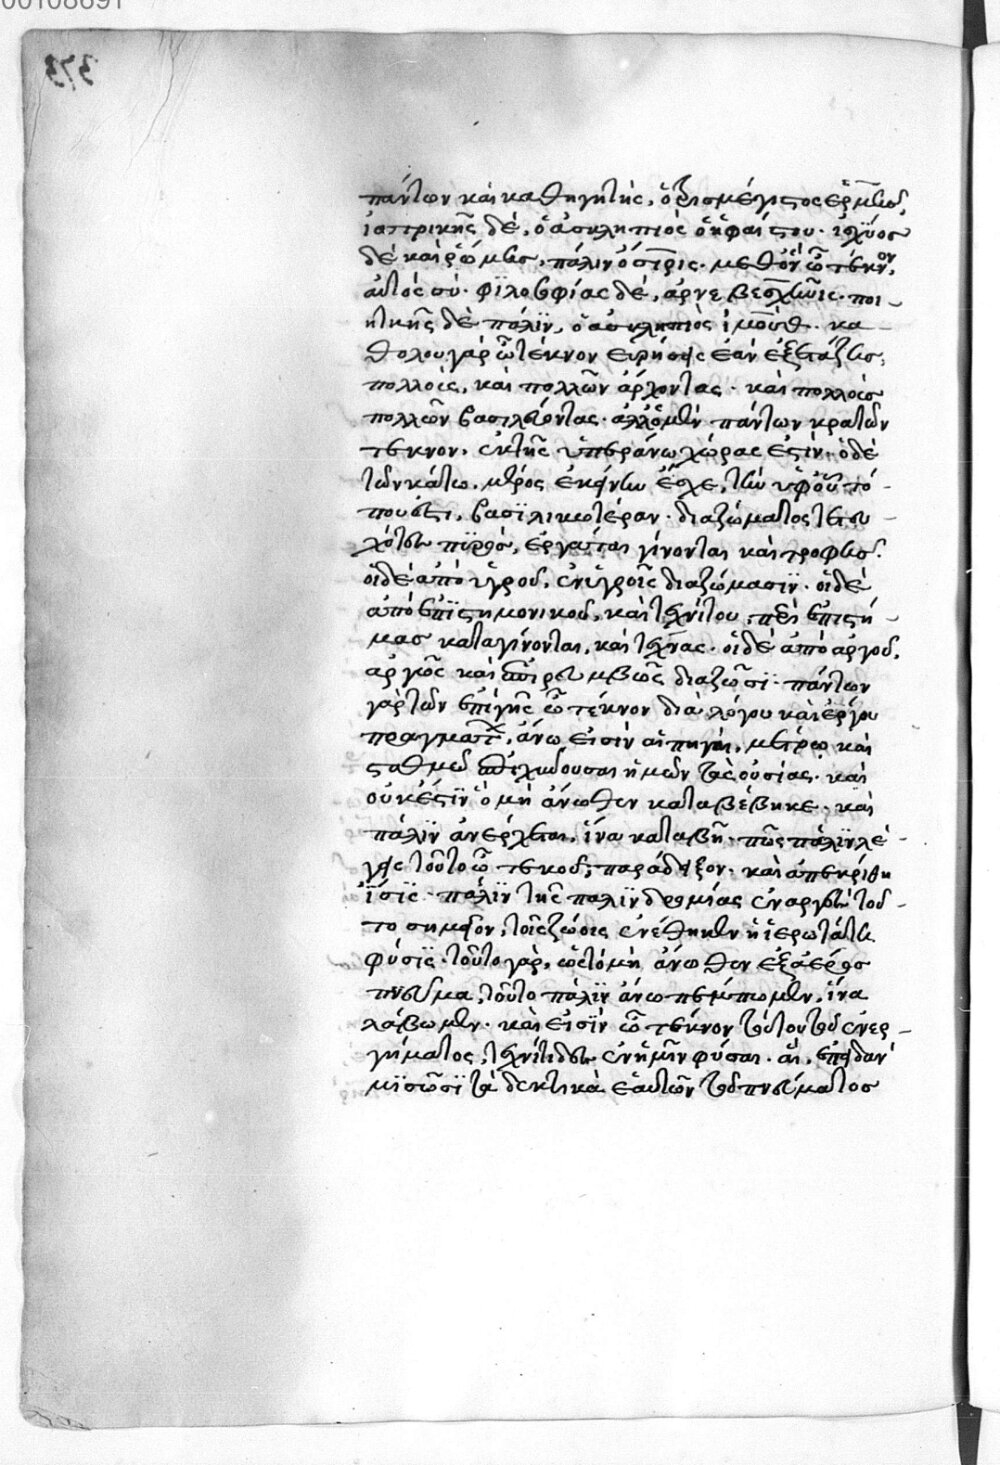 00108691
373
πάντων καὶ καθηγητὴς, ὁ τρισμέγιστος ἑρμῆς
ἰατρικῆς δὲ, ὁ ἀσκληπιὸς ὁ ἡφαίστου· ἰσχύος
δὲ καὶ ῥώμης, πάλιν ὄσιρις· μεθ' ὃν ὦ τέκνον,
αὐτὸς σύ· φϊλοσοφίας δὲ, ἀρνεβεσχῆνις· ποι-
ητικῆς δὲ πάλϊν, ὁ ἀσκληπιὸς ἰμούθ· κα-
θόλου γὰρ ὦ τέκνον εὑρήσεις ἐὰν ἐξετάζης,
πολλοὺς, καὶ πολλῶν ἄρχοντας· καὶ πολλοὺς
πολλῶν βασιλεύοντας· ἀλλ' ὁ μὲν πάντων κρατῶν
τέκνον, ἐκ τῆς ὑπεράνω χώρας ἐστὶν· ὁ δὲ
τῶν κάτω,
πού ἐστι, βασϊλικωτέραν· διαζώματος
πϋρὸς, ἐργάται γίνονται καὶ τροφῆς·
οἱ δὲ ἀπὸ ὑγροῦ, ἐν ὑγροῖς διαζώμασϊν· οἱ δὲ
ἀπὸ ἐπϊστημονικοῦ, καὶ τεχνίτου, περὶ ἐπιστή-
μας καταγίνονται, καὶ τέχνας· οἱ δὲ ἀπὸ ἀργοῦ,
ἀργῶς καὶ διαζῶσϊ· πάντων
γὰρ τῶν ἐπὶ γῆς ὦ τέκνον διὰ λόγου καὶ ἔργου
πραγμάτων, ἄνω εἰσὶν αἱ πηγαὶ, μέτρω καὶ
σταθμῶ ἐπιχέουσαι ἡμῖν τὰς οὐσίας· καὶ
οὐκ ἔστϊν ὃ μὴ ἄνωθεν καταβέβηκε· καὶ
πάλϊν ἀνέρχεται, ἵνα καταβῆ· πῶς πάλϊν λέ-
γεις τοῦτο ὦ τεκοῦ; παράδειξον· καὶ ἀπεκρίθη
ἶσϊς· πάλϊν τῆς παλϊνδρομίας ἐναργὲς τοῦ-
το σημεῖον, τοῖς ζώοις ἐνέθηκεν ἡ ἱερωτάτη
φύσϊς· τοῦτο γὰρ, ὡς τὸ μὴ ἄνωθεν ἐξ ἀέρος
πνεῦμα, τοῦτο πάλϊν ἄνω πέμπομεν, ἵνα
λάβωμεν· καὶ εἰσὶν ὦ τέκνον τούτου τοῦ ἐνερ-
γήματος, τεχνίτιδες ἐν ἡμῖν φύσαι· αἳ, ἐπειδὰν
μϋσωσϊ τὰ δεκτικὰ ἑαυτῶν τοῦ πνεύματος